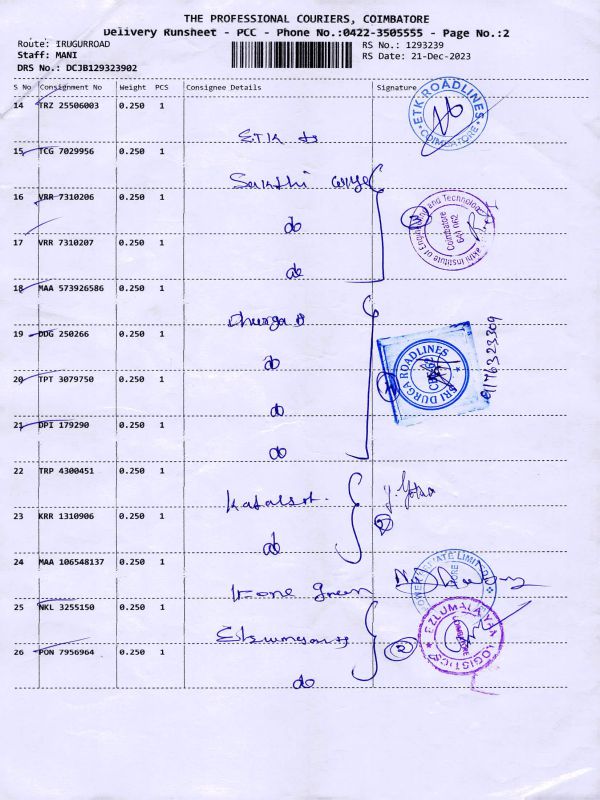 THE PROFESSIONAL COURIERS, COIMBATORE
Delivery Runsheet - PCC - Phone No.:0422-3505555 - Page No.:2
Route: IRUGURROAD
RS No.: 1293239
Staff: MANI
RS Date: 21-Dec-2023
DRS No.: DCJB129323902
S No Consignment No Weight PCS Consignee Details Signature
14 TRZ 25506003 0.250 1
ETK do
ETK ROADLINES
COIMBATORE
15 TCG 7029956 0.250 1
Sakthi
16 VRR 7310206 0.250 1
do
3
Institute of Engineering and Technology
Coimbatore
641 062
17 VRR 7310207 0.250 1
do
18 MAA 573926586 0.250 1
Dhurga
19 DDG 250266 0.250 1
do
SRI DURGA ROADLINES
9176323309
20 TPT 3079750 0.250 1
do
21 DPI 179290 0.250 1
do
22 TRP 4300451 0.250 1
23 KRR 1310906 0.250 1
do
2
24 MAA 106548137 0.250 1
green
POWER PRIVATE LIMITED
25 NKL 3255150 0.250 1
EZLUMALAIYAN
LOGISTICS
26 PON 7956964 0.250 1
do
2